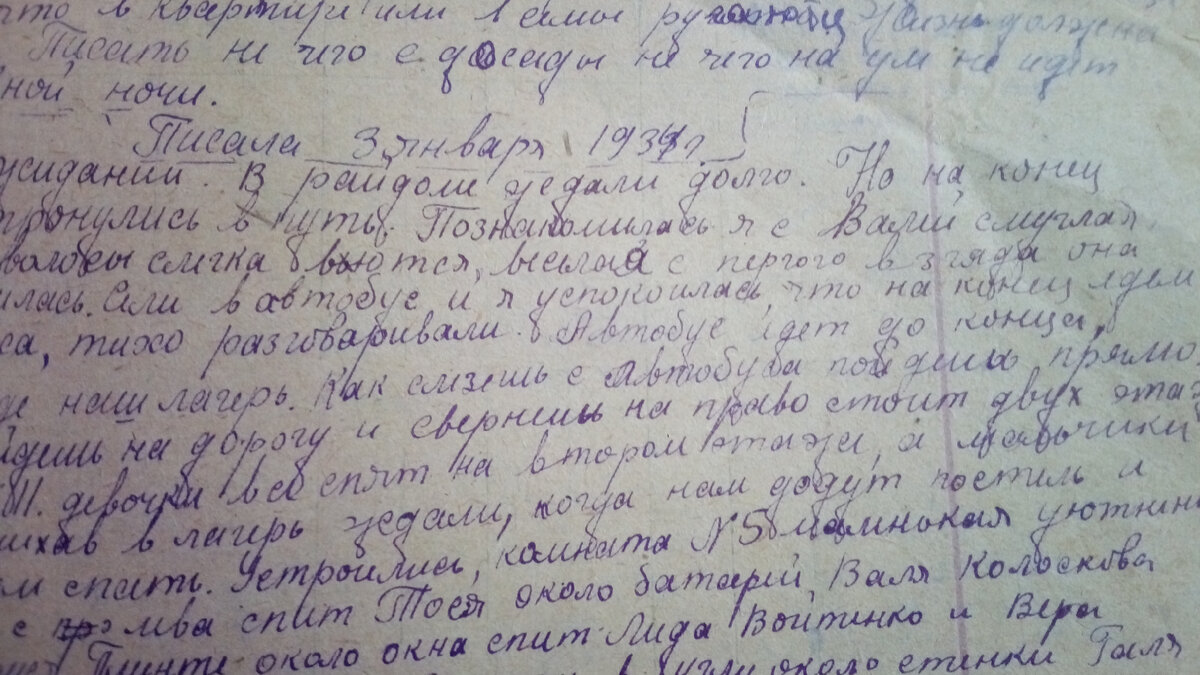 что в квартире или в самые жизнь должна
Писать не чего с досады не чего на ум не идет
ной ночи.
Писала 3 января 1937г
жидании. В райдоме жедали долго. Но на конец
тронулись в путь. Познакомилась я с Валей смуглая,
волосы слегка вьются, веселая с пергого взгляда она
илась. Сели в автобус и я успокоилась, что на конец едем
са, тихо разговаривали. Автобус идет до конца,
де наш лагерь. Как слезешь с Автобуба пойдешь прямо
йдешь на дорогу и свернешь на право стоит двух эта-
девочки все спят на втором этаже, а мальчики
ихав в лагерь жедали, когда нам додут постель и
м спать. Устроились, комната №5 маминькая уютнинь
с спит Тося около батарей, Валя Колоскова
около окна спит Лида Войтенко и Вера
в углу около стенки Галя